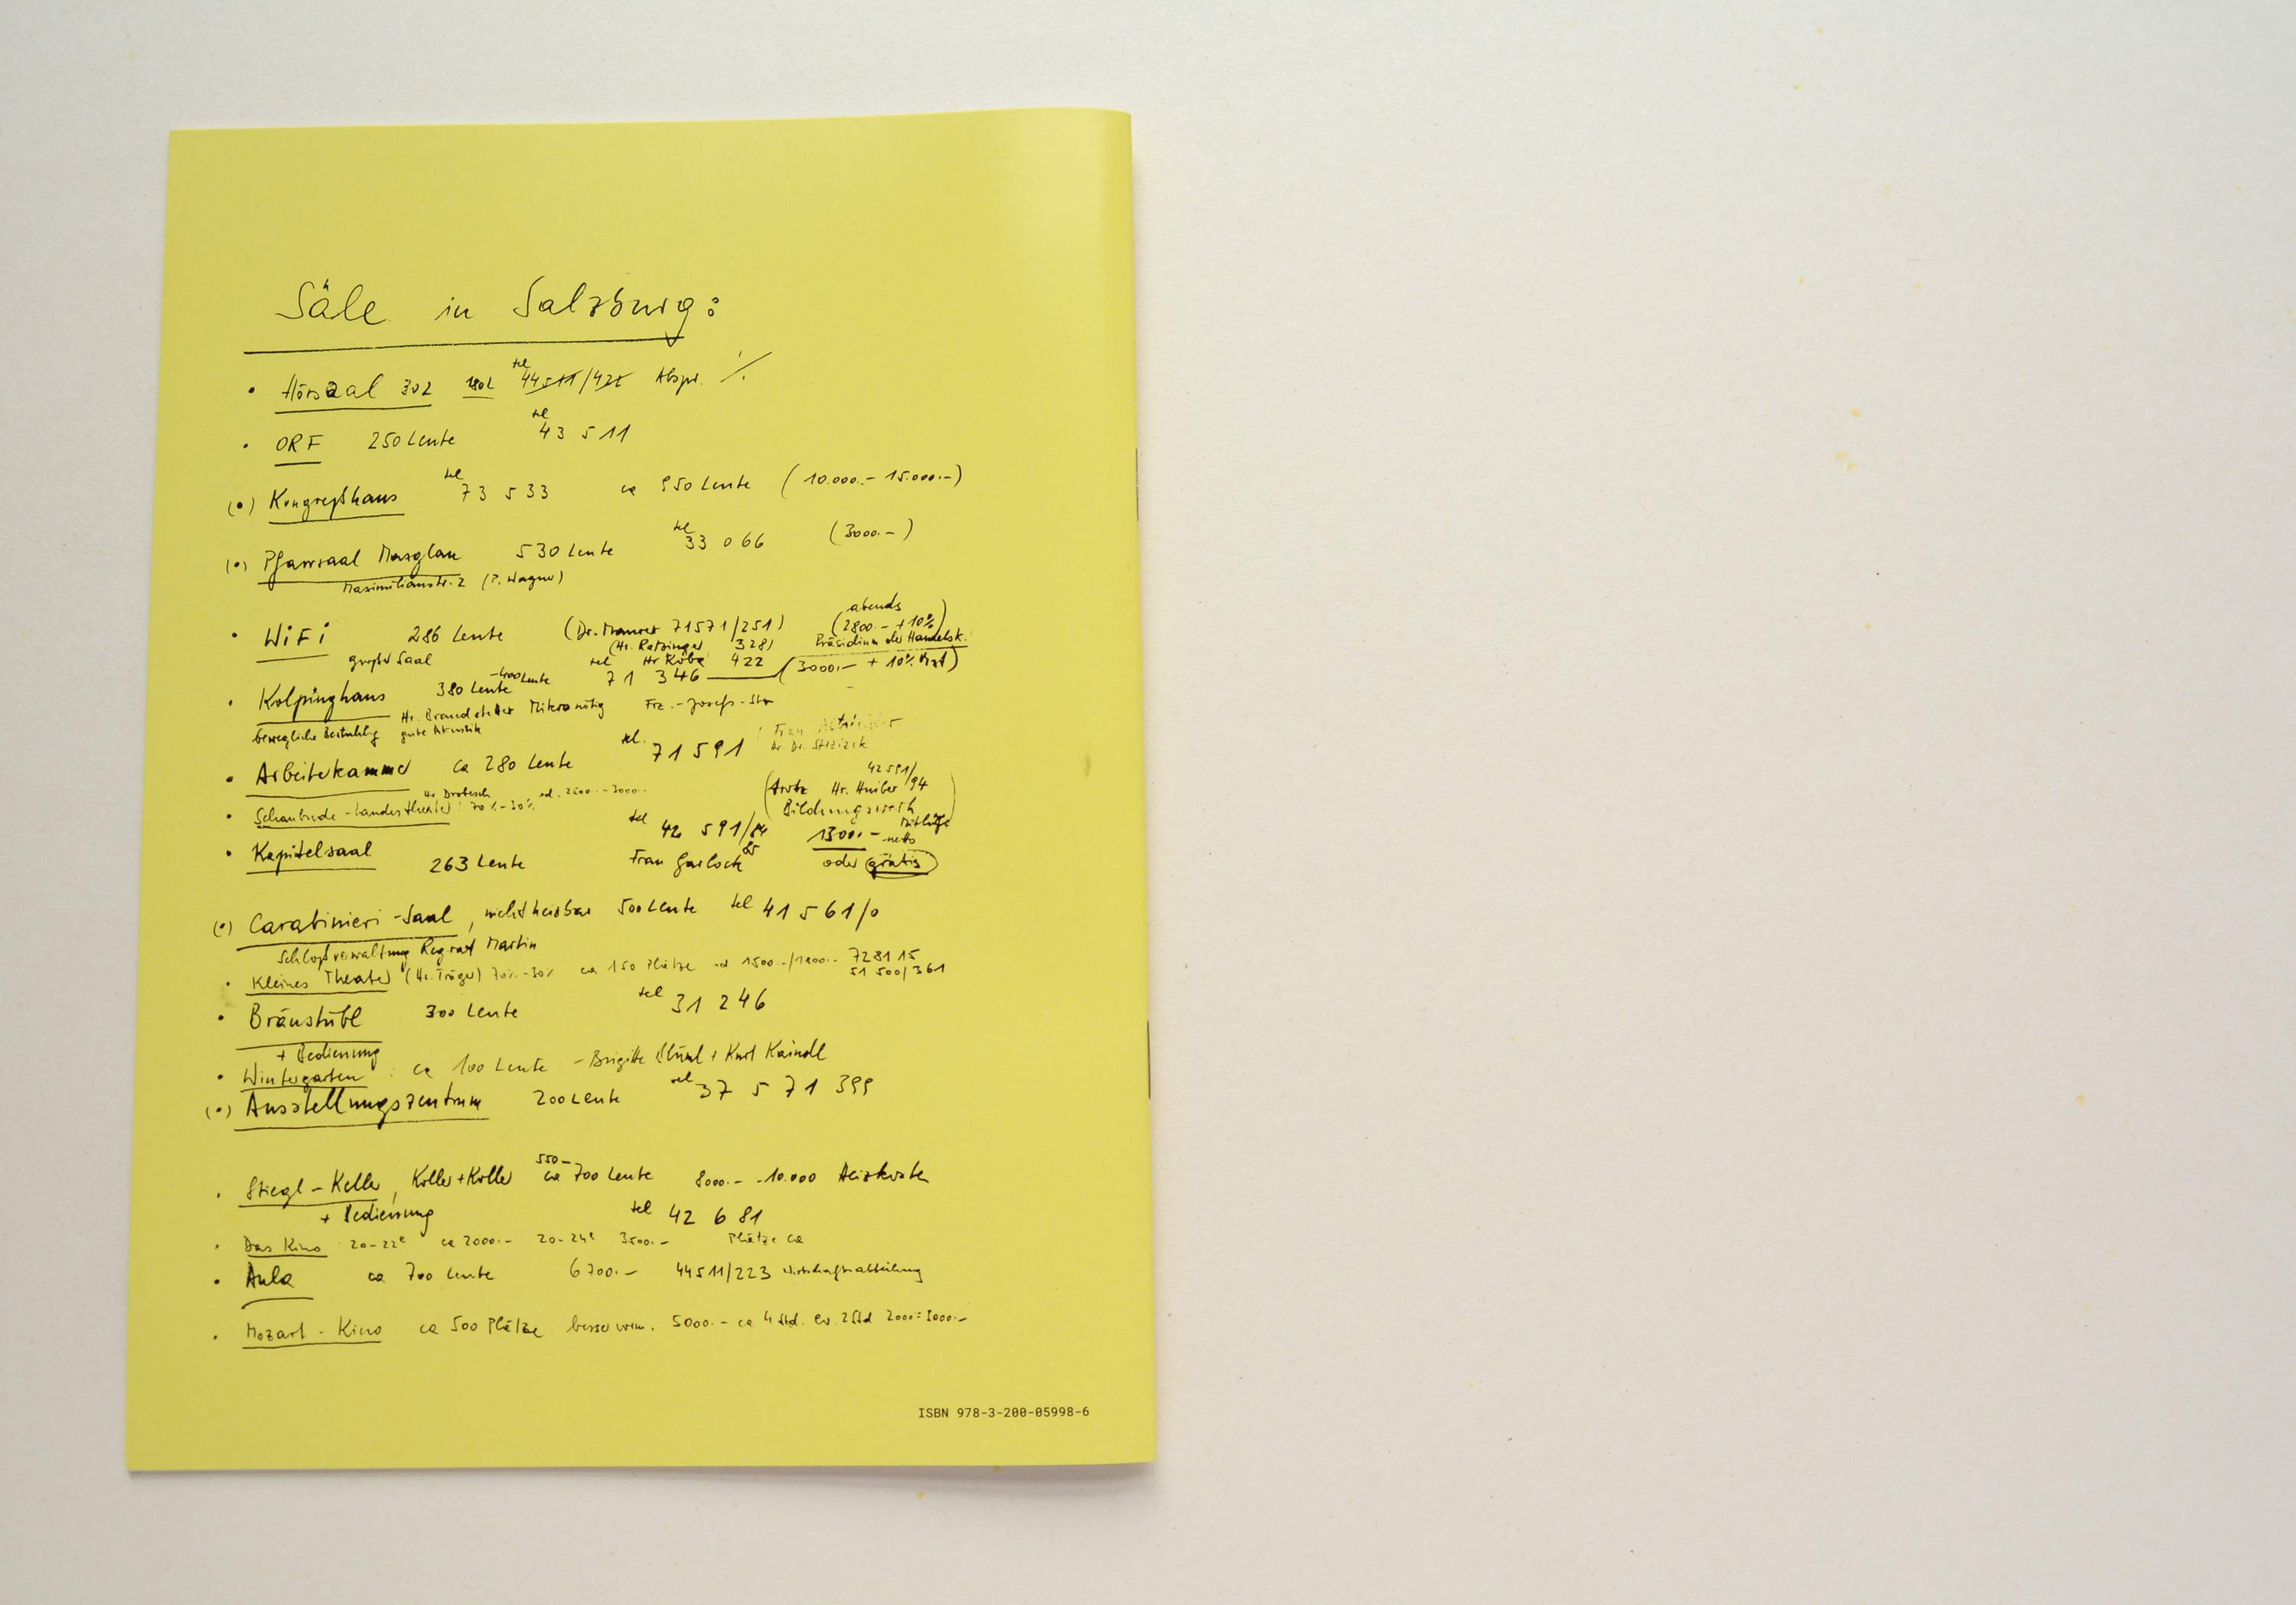 Säle in Salzburg:
• Hörsaal 302 tel 44511/421 Abspr. ·/.
• ORF 250 Leute tel 43 511
(•) Kongreßhaus tel 73 533 ca 950 Leute (10.000.- 15.000.-)
(•) Pfarrsaal Maxglan 530 Leute tel 33 066 (3000.-)
Maximilianstr. 2 (P. Wagner)
abends
• WiFi 286 Leute (Dr. Maurer 71571/251) (2800.- + 10%)
(Hr. Ratzinger 328) Präsidium der Handelsk.
großer Saal tel Hr 422 (3000.- + 10%
• Kolpinghaus 380 Leute -400 Leute 71 346
Hr. Brandstetter Mikro nötig Frz.-Josefs-Str
bewegliche Bestuhlg gute Akustik
• Arbeiterkammer ca 280 Leute tel. 71 591 Frau
Hr. Drobesch od. 2500.- - 3000.-
• Schaubude - Landestheater: 70%-30%
42591/94
(Hr. Huiber
Bildungswerk
Mithilfe
• Kapitelsaal 263 Leute tel 42 591/84 1300.- netto
Frau Garlock 85 oder gratis
(•) Carabinieri-Saal, nicht heizbar 500 Leute tel 41 561/0
Schloßverwaltung Regrat Martin
• Kleines Theater (Hr. Tröger) 70%-30% ca 150 Plätze od 1500.-/1800.- 7281 15
51 500/361
• Bräustübl 300 Leute tel 31 246
+ Bedienung
• Wintergarten : ca 100 Leute - Brigitte + Kurt Kaindl
(•) Ausstellungszentrum 200 Leute tel 37 5 71 399
• Stiegl-Keller, Koller+Koller 550- ca 700 Leute 8000.- -10.000 Heizkosten
+ Bedienung tel 42 6 81
• Das Kino 20-22h ca 2000.- 20-24h 3500.- Plätze ca
• Aula ca 700 Leute 6700.- 44511/223 Wirtschaftsabteilung
• Mozart-Kino ca 500 Plätze besser vorm. 5000.- ca 4 Std. ev. 2 Std 2000.-3000.-
ISBN 978-3-200-05998-6